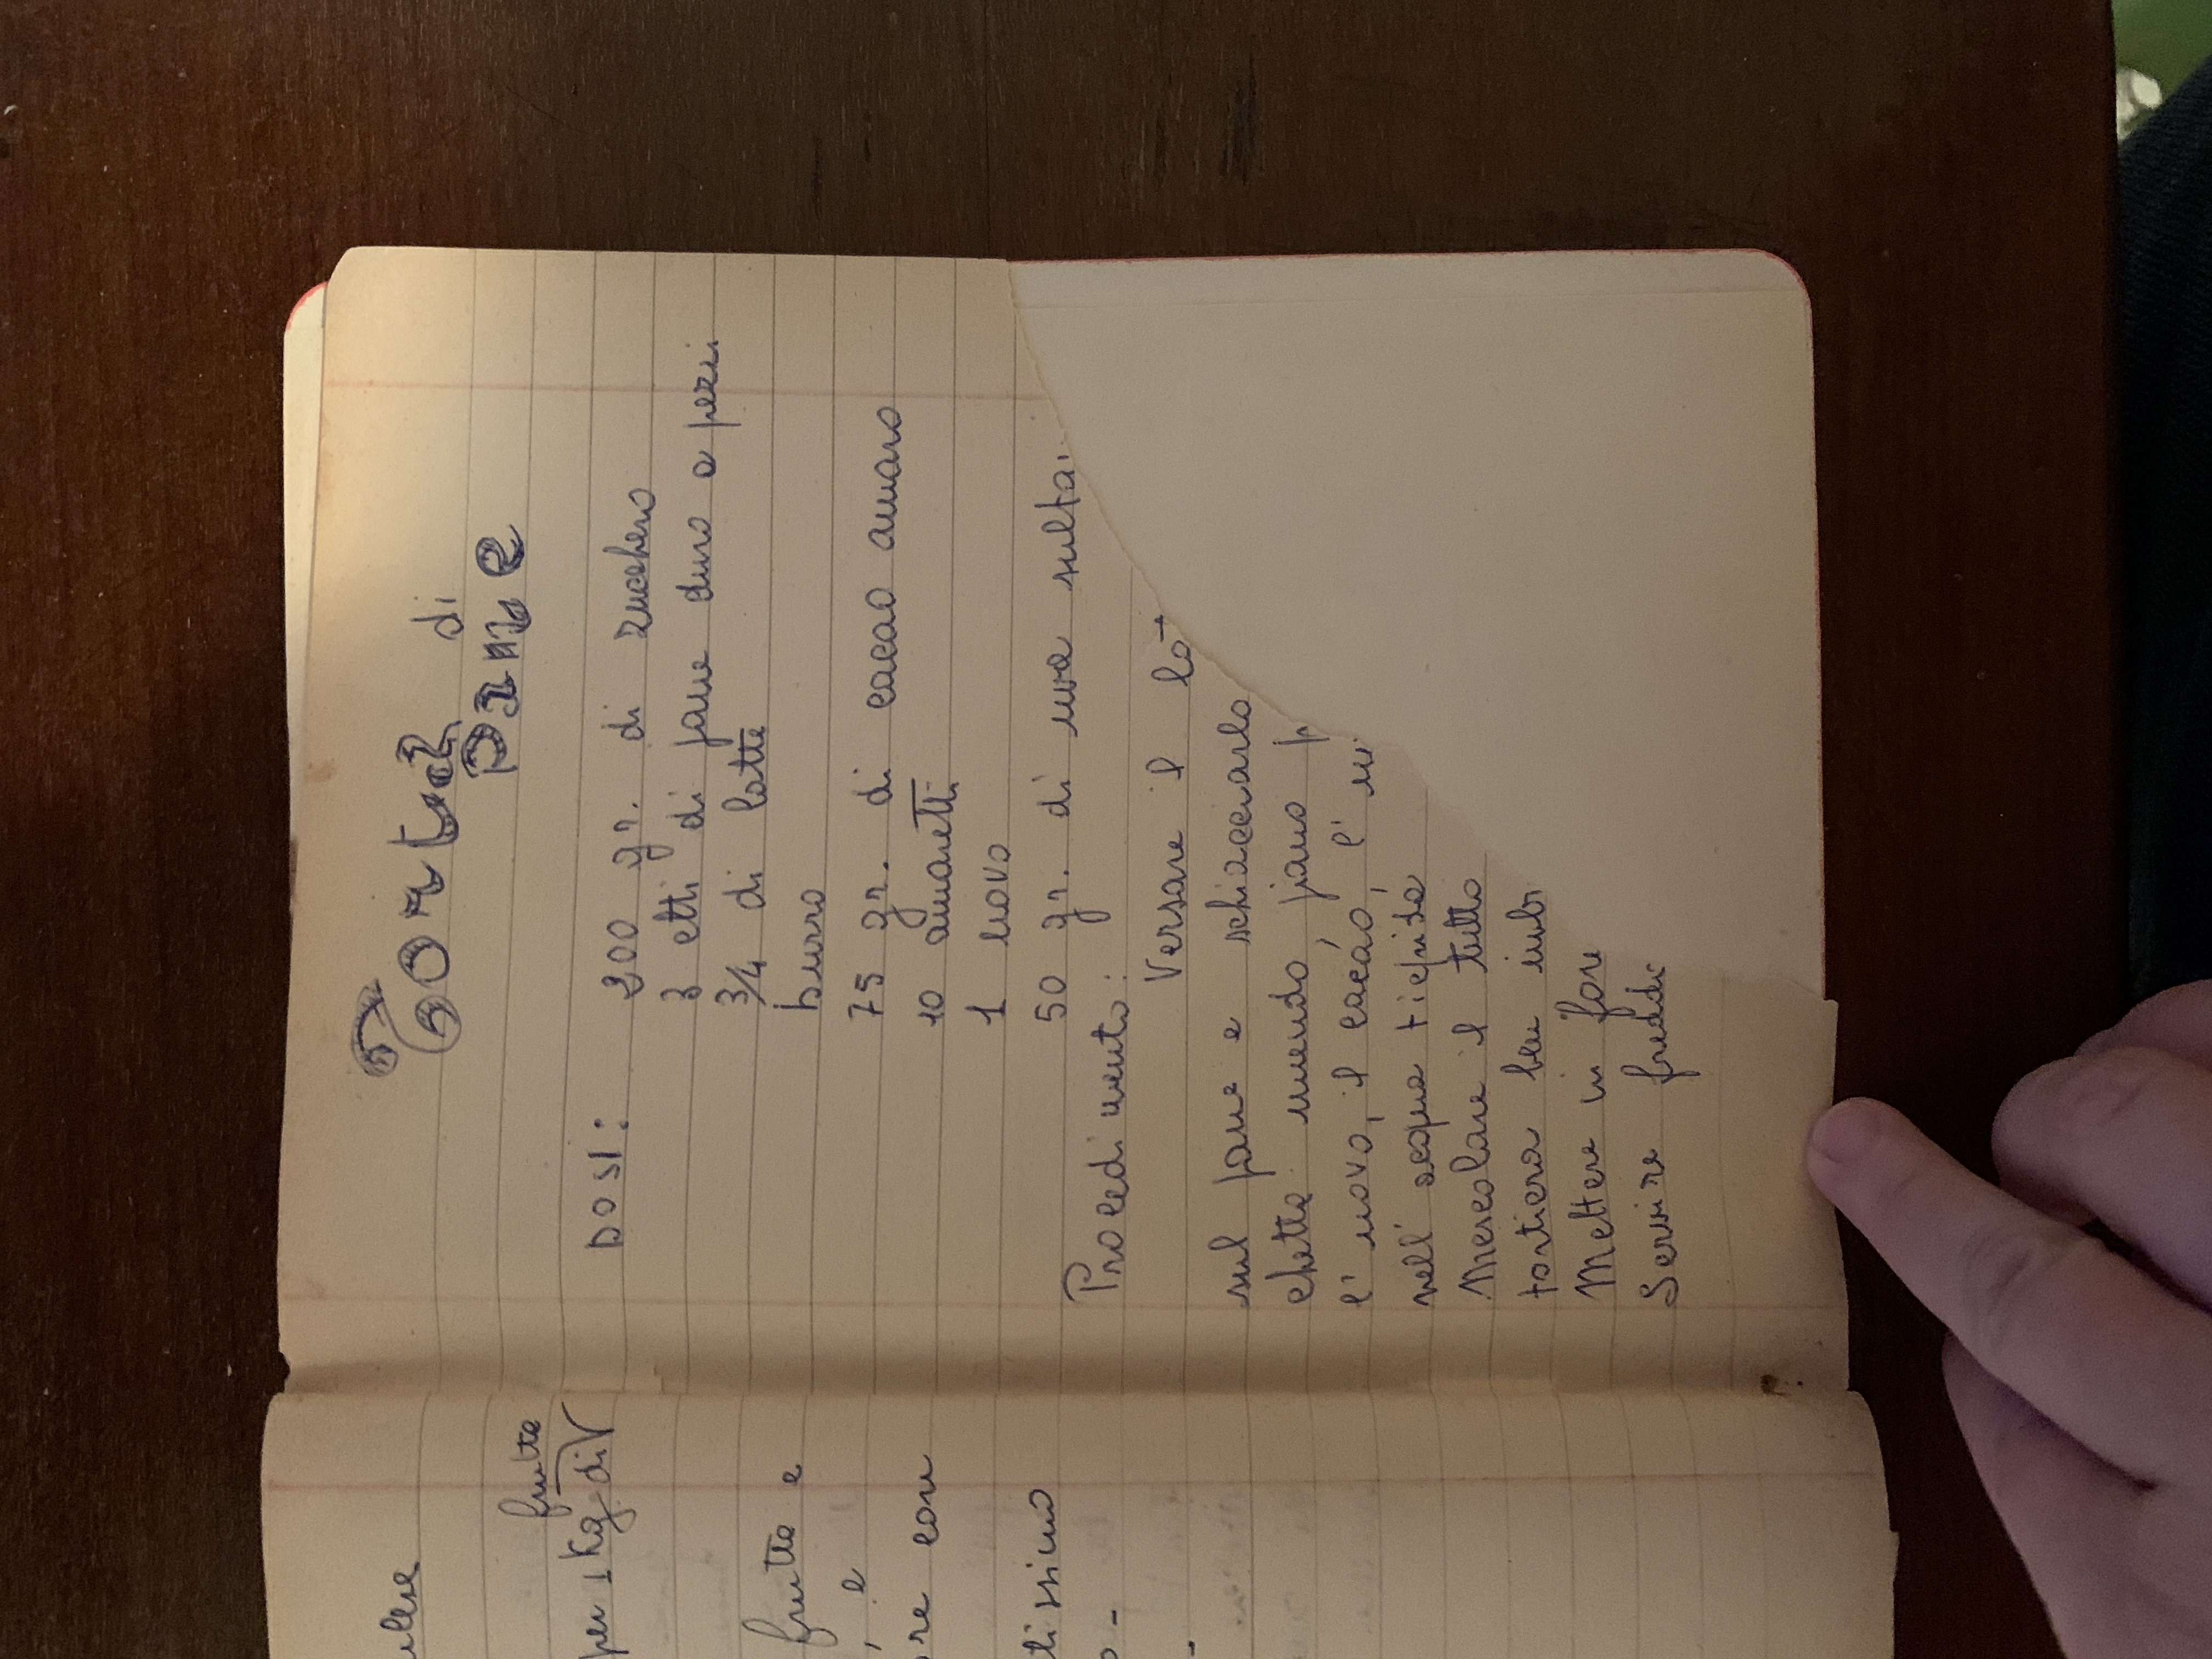 frutta
per 1 Kg di V
frutta e
, e
con
Torta di
Pane
DOSI: 200 gr. di zucchero
3 etti di pane duro a pezzi
3/4 di latte
burro
75 gr. di cacao amaro
10 amaretti
1 uovo
50 gr. di uva sulta
Procedimento:
Versare il lat
sul pane e schiacciarlo
chetta unendo, piano p
l'uovo, il cacao, l'u
nell'acqua tiepida
Mescolare il tutto
tortiera ben imbr
Mettere in for
Servire fredd